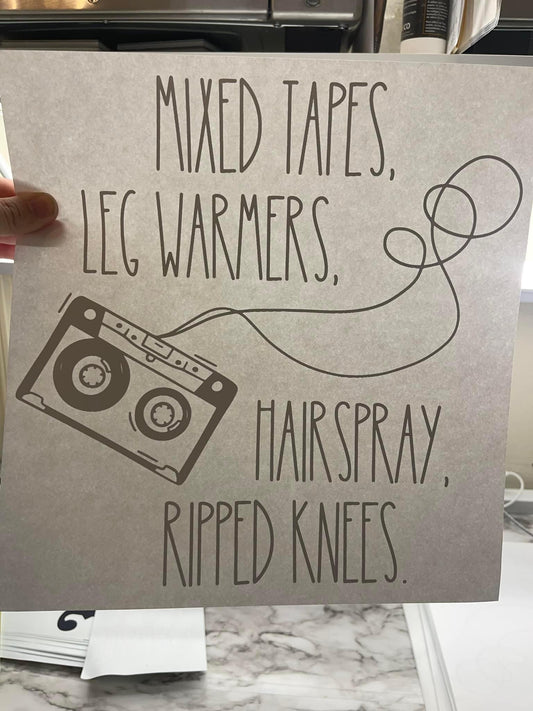 MIXED TAPES,
LEG WARMERS,
HAIRSPRAY,
RIPPED KNEES.